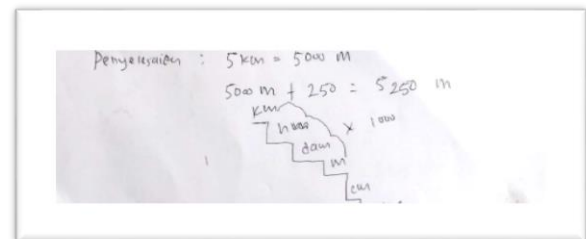 Penyelesaian : 5 km = 5000 m
5000 m + 250 = 5250 m
km
hm × 1000
dam
m
cm